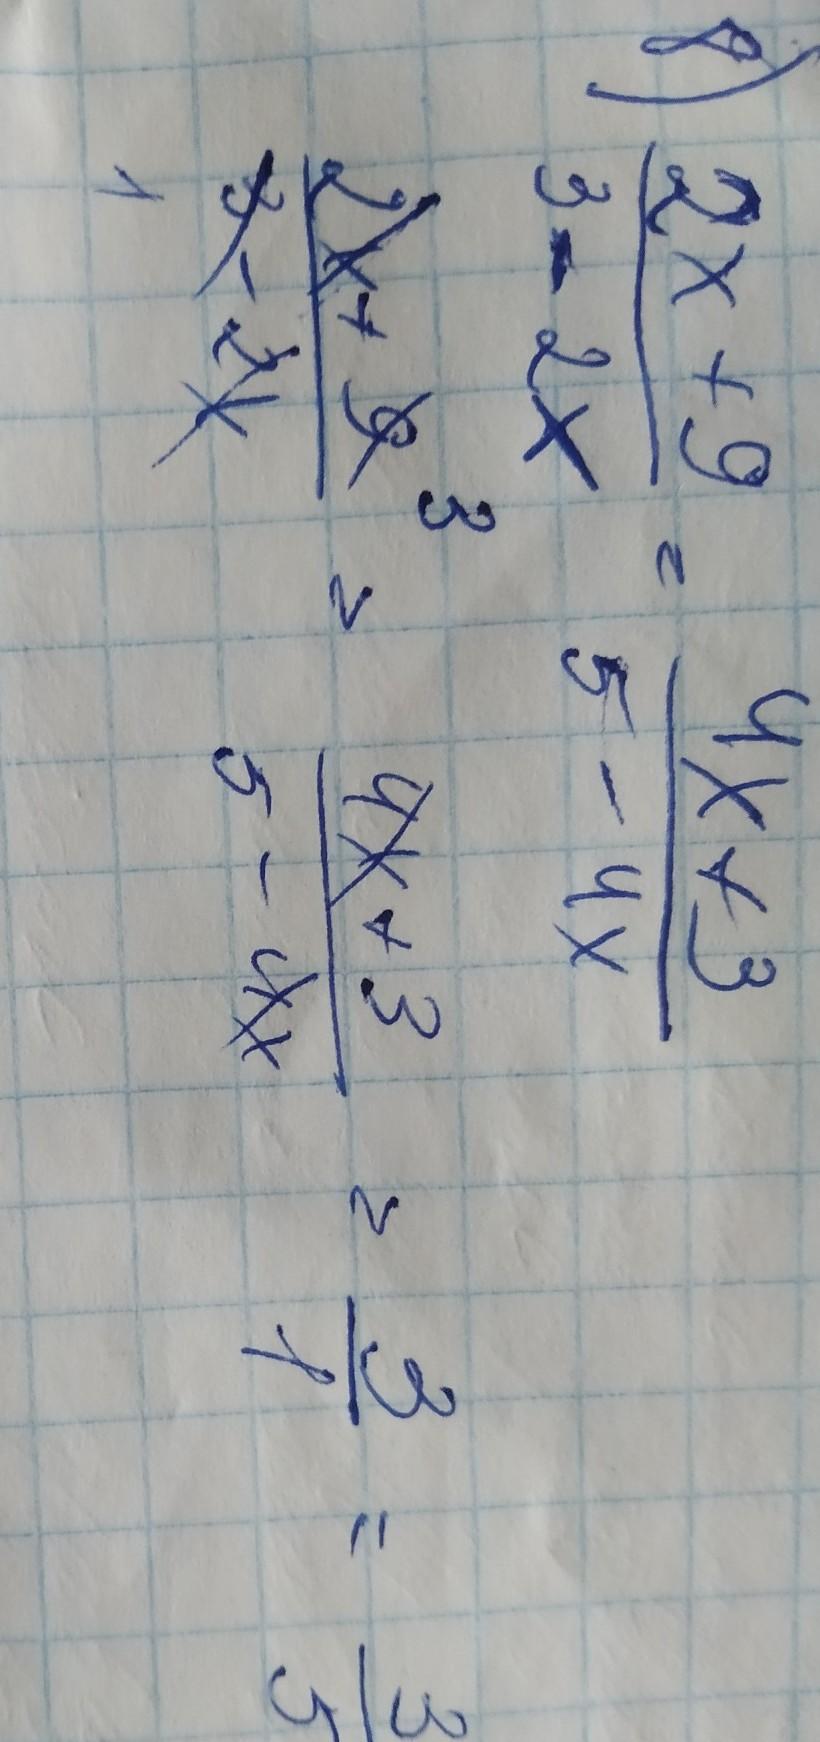 8) (2x + 9)/(3 - 2x) = (4x + 3)/(5 - 4x)
(2x + 9)/(3 - 2x) = (4x + 3)/(5 - 4x) = 3/1 = 3/5
3
1